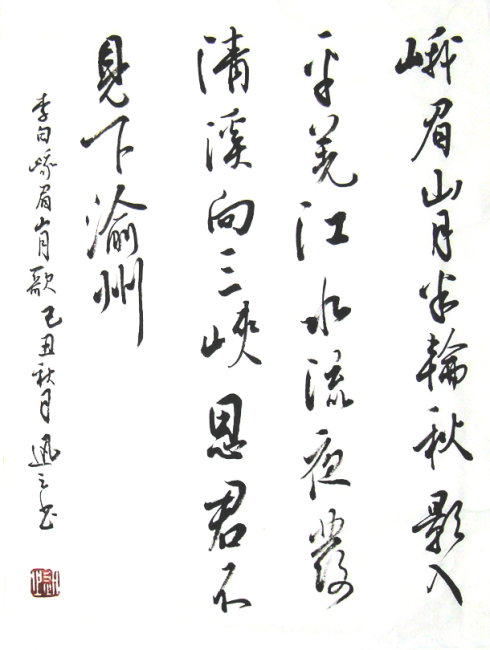 峨眉山月半輪秋影入
平羌江水流夜發
清溪向三峽思君不
見下渝州
李白峨眉山月歌己丑秋月之书